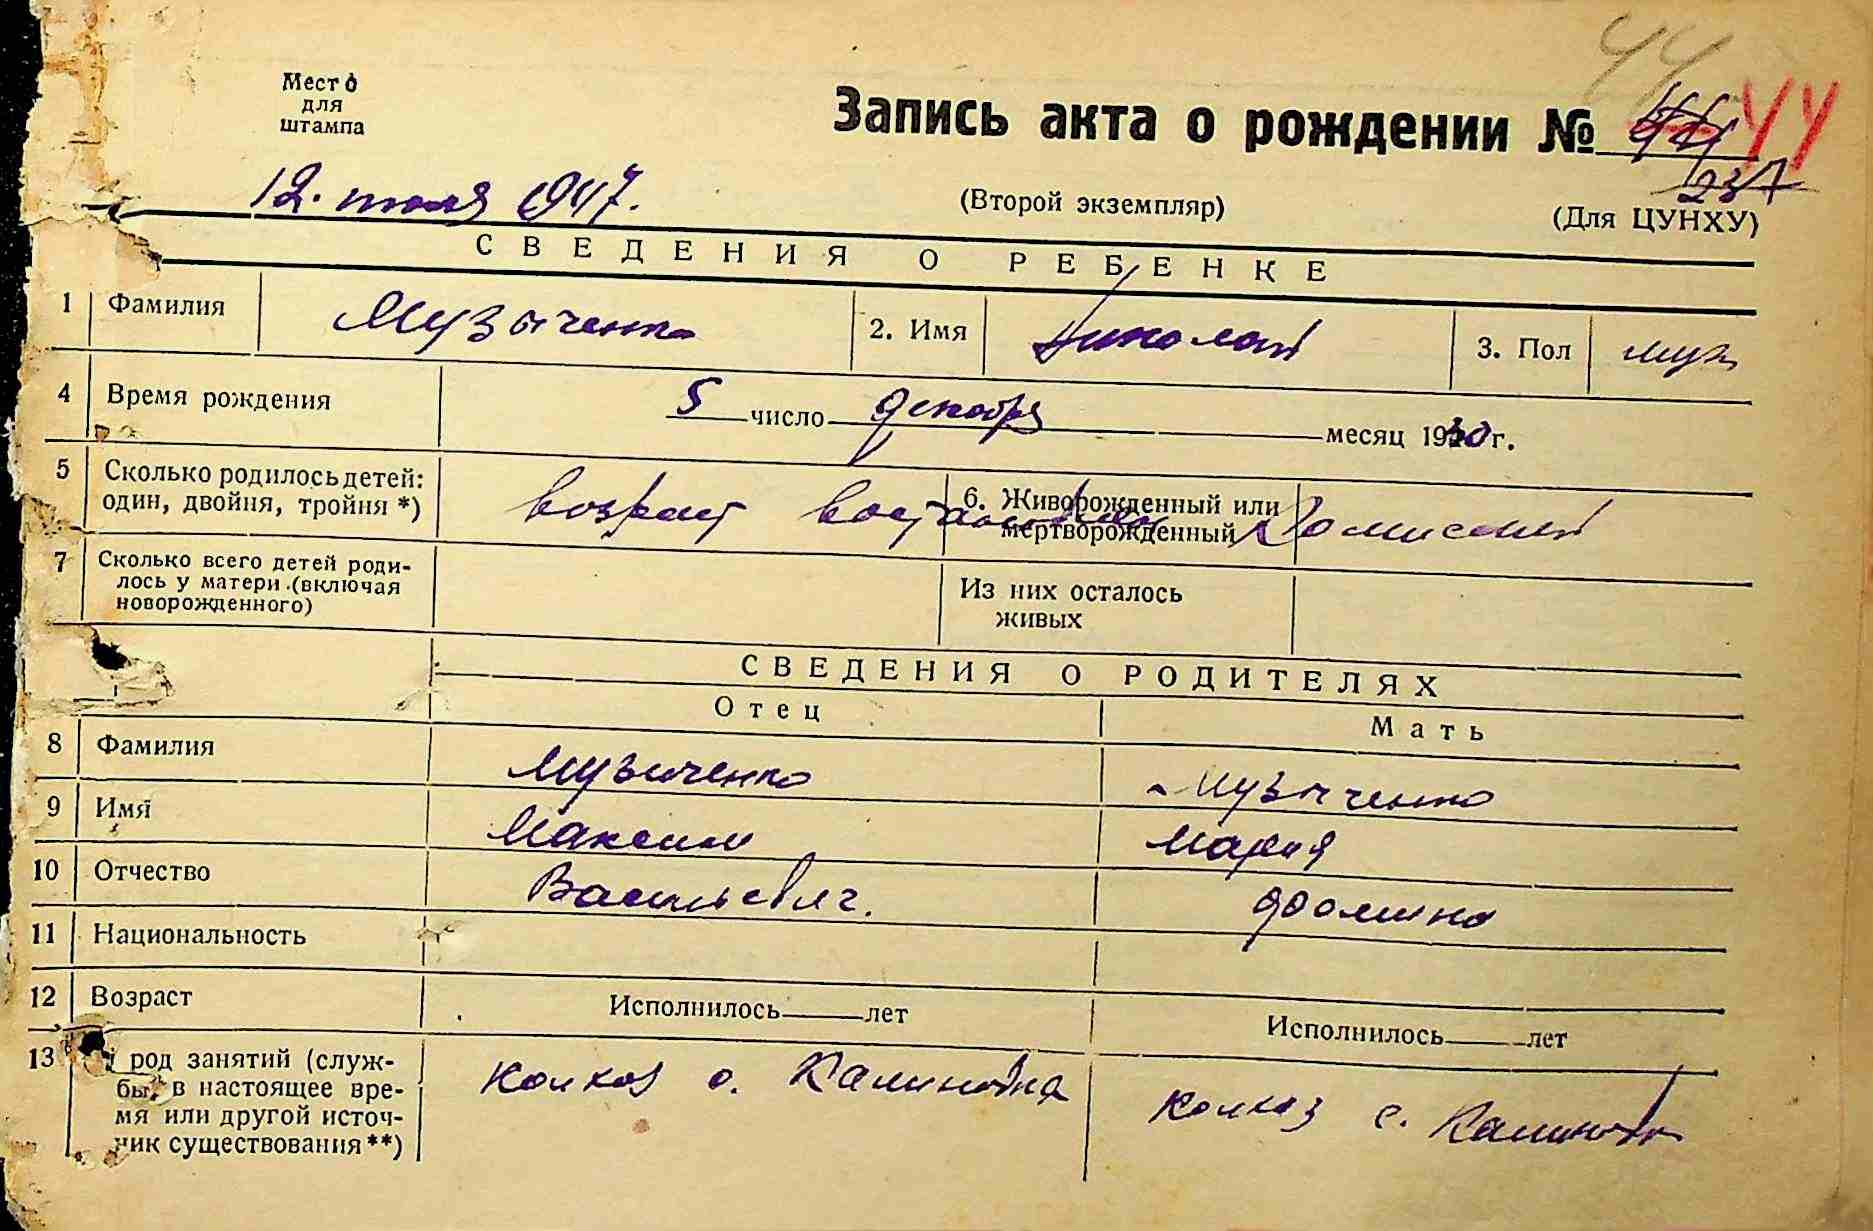 44
Место
для
штампа
Запись акта о рождении № 44
237
12. июля 1947.
(Второй экземпляр)
(Для ЦУНХУ)
СВЕДЕНИЯ О РЕБЕНКЕ
1 Фамилия Музыченко 2. Имя Николай 3. Пол муж
4 Время рождения 5 число декабря месяц 1930 г.
5 Сколько родилось детей:
один, двойня, тройня *)
6. Живорожденный или
мертворожденный
возраст восстановлен Комиссией
7 Сколько всего детей роди-
лось у матери (включая
новорожденного)
Из них осталось
живых
СВЕДЕНИЯ О РОДИТЕЛЯХ
Отец Мать
8 Фамилия Музыченко Музыченко
9 Имя Максим Мария
10 Отчество Васильевич. Фомина
11 Национальность
12 Возраст Исполнилось лет Исполнилось лет
13 род занятий (служ-
бы) в настоящее вре-
мя или другой источ-
ник существования **)
Колхоз с. Калиновка Колхоз с. Калиновка